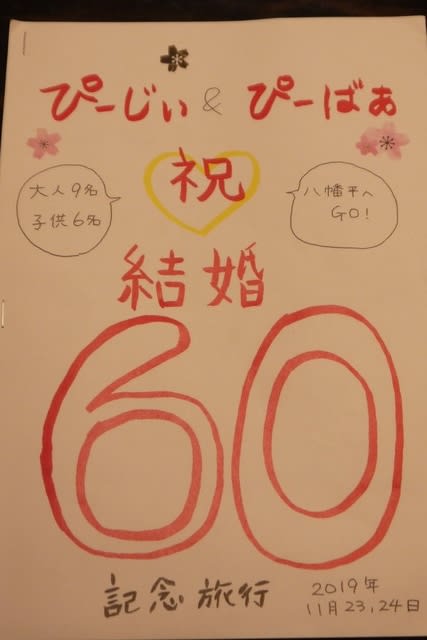 ぴーじぃ & ぴーばぁ
祝
大人9名
子供6名
八幡平へ
GO!
結婚
60
記念旅行
2019年
11月23,24日